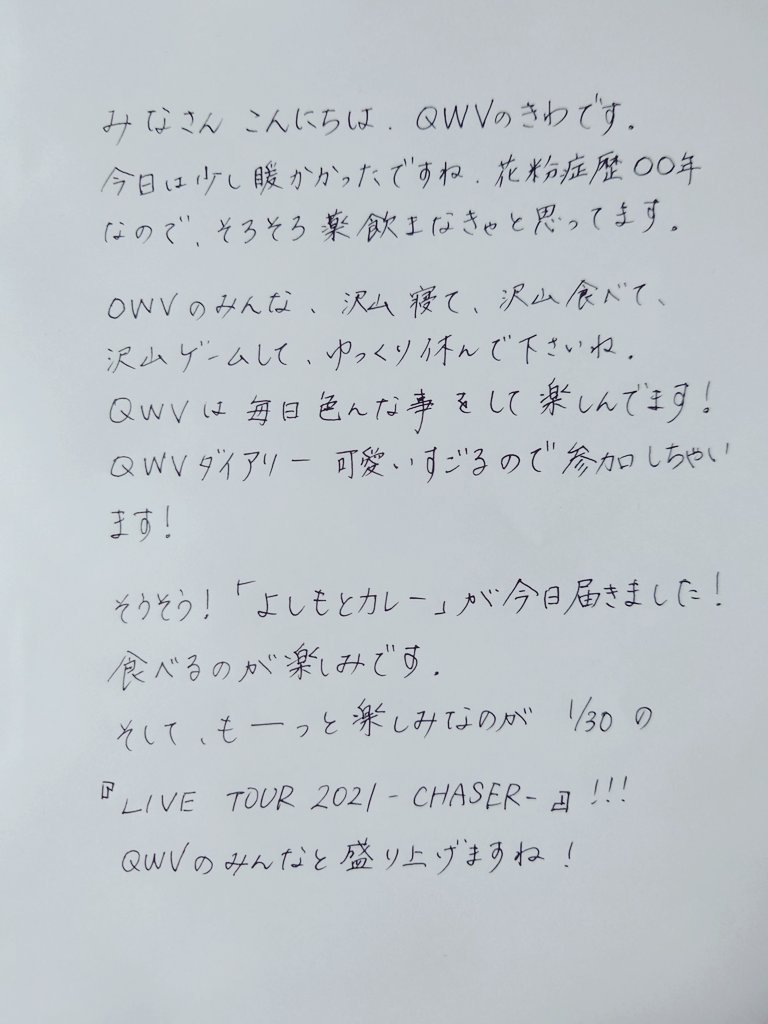 みなさん こんにちは、QWVのきわです。
今日は少し暖かかったですね、花粉症歴〇〇年
なので、そろそろ薬飲まなきゃと思ってます。
OWVのみんな、沢山寝て、沢山食べて、
沢山ゲームして、ゆっくり休んで下さいね。
QWVは毎日色んな事をして楽しんでます!
QWVダイアリー 可愛いすごるので参加しちゃい
ます!
そうそう!「よしもとカレー」が今日届きました!
食べるのが楽しみです。
そして、もーっと楽しみなのが 1/30 の
『LIVE TOUR 2021-CHASER-』!!!
QWVのみんなと盛り上げますね!